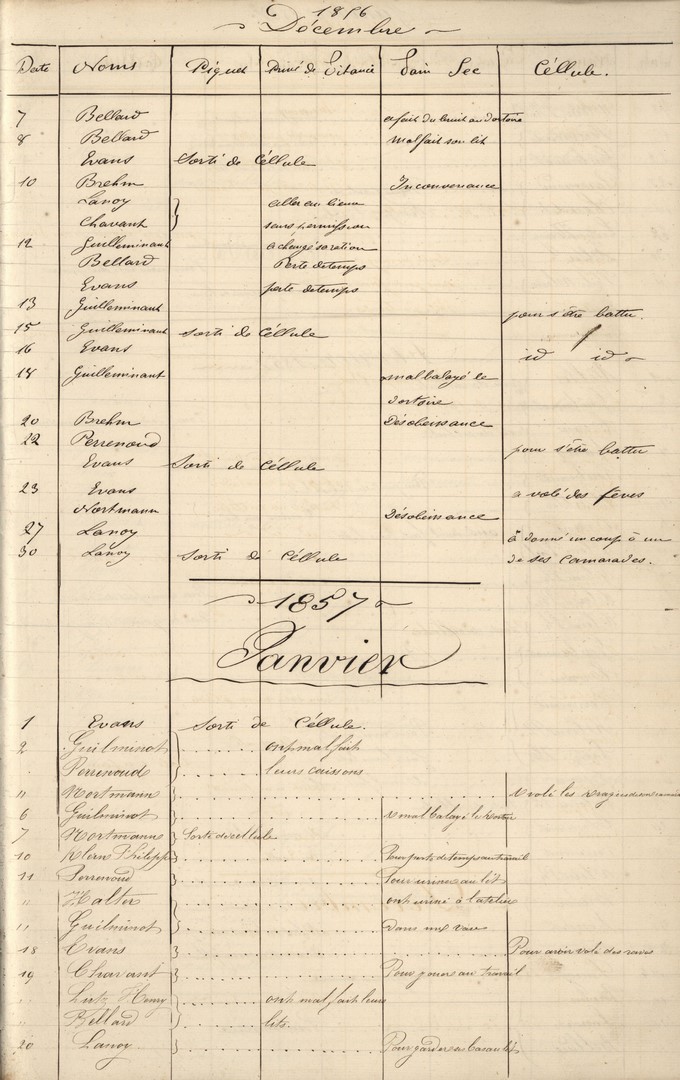 1856
Décembre
Date Noms Piquet Privé de Pitance Pain Sec Céllule.
7 Bellard a fait du bruit au dortoire
8 Bellard mal fait son lit
Evans Sorti de Céllule
10 Brehm Inconvenance
Lanoy } aller au lieux
Chavant } sans permission
12 Guilleminant a changé sa ration
Bellard Perte de temps
Evans perte de temps
13 Guilleminant pour s'être battu.
15 Guilleminant sorti de Céllule
16 Evans id id
18 Guilleminant mal balayé le
dortoire
20 Brehm Désobeissance
22 Perrenoud pour s'être battu
Evans Sorti de Céllule
23 Evans a volé des fèves
Nortmann Désobeissance
27 Lanoy à donné un coup à un
30 Lanoy Sorti de Céllule de ses Camarades.
1857
Janvier
1 Evans Sorti de Céllule.
2 Guilminot } ont mal fait
Perrenoud } leurs caissons
" Nortmann } volé les
6 Guilminot } mal balayé le
7 Nortmann } Sorti de cellule
10 Philippe } Pour perte de temps au travail
11 Perrenoud } Pour uriner au lit
" Halter } ont uriné à l'atelier
" Guilminot } dans un vase
18 Evans } Pour avoir volé des raves
19 Chavant } Pour jouer au travail
" Lutz Henry } ont mal fait leurs
" Bellard } lits.
20 Lanoy } Pour garder ses bas au lit